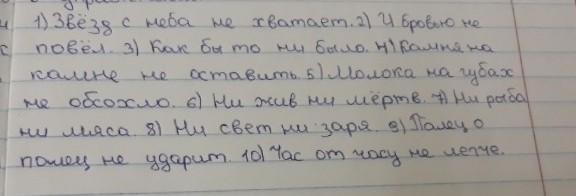 1) Звёзд с неба не хватает. 2) И бровью не
повёл. 3) Как бы то ни было. 4) Камня на
камне не оставить. 5) Молоко на губах
не обсохло. 6) Ни жив ни мёртв. 7) Ни рыба
ни мяса. 8) Ни свет ни заря. 9) Палец о
палец не ударит. 10) Час от часу не легче.